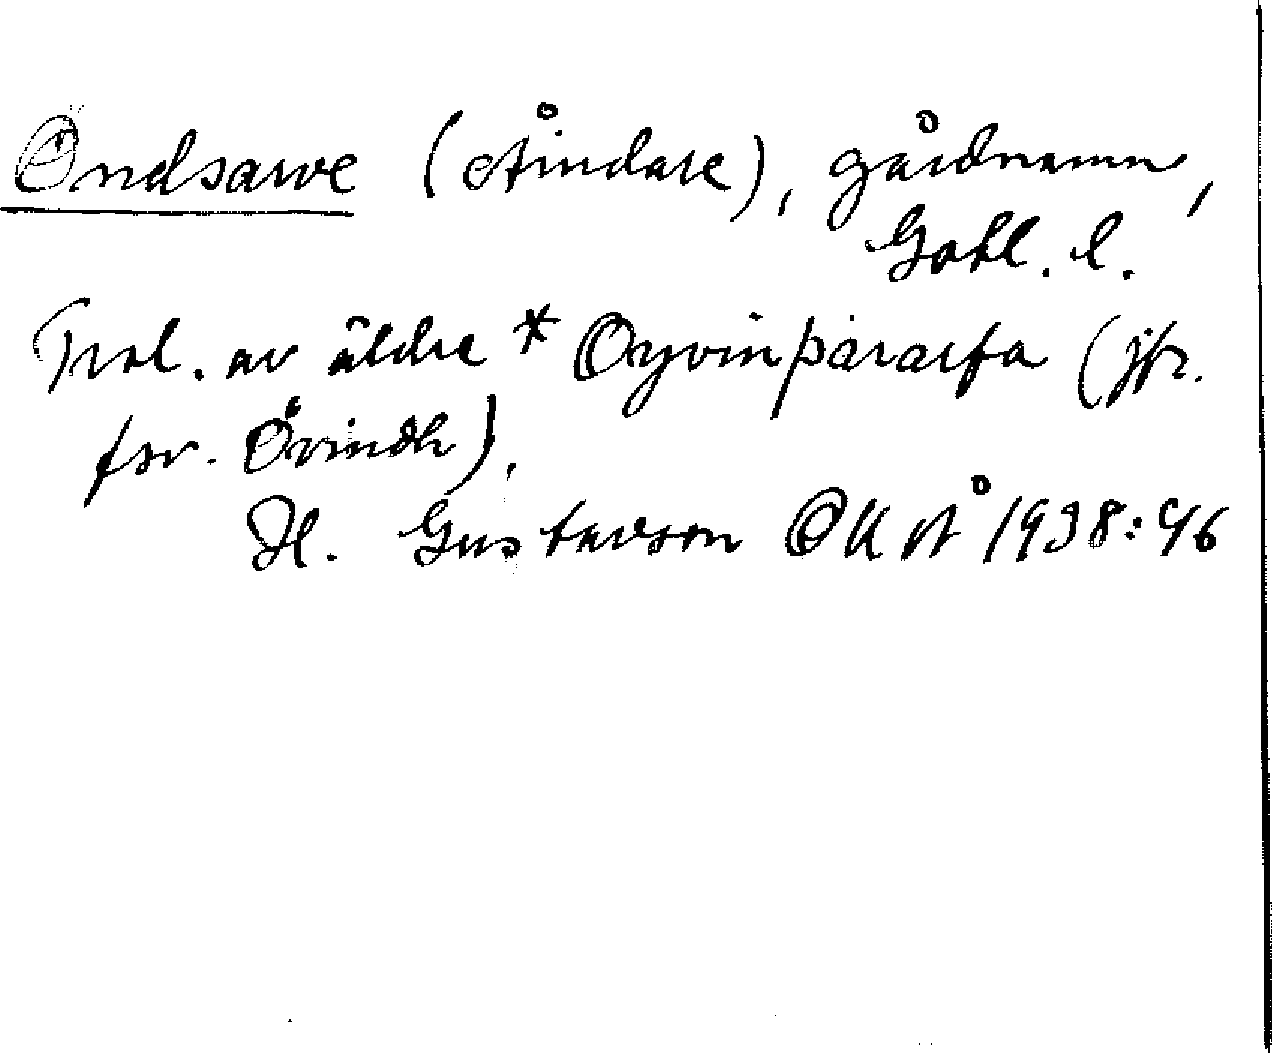 Öndsarve (Åindare), gårdnamn,
Gotl. l.
Trol. av äldre * Oyvinþararfa (jfr.
fsv. Övindh).
H. Gustavson OUÅ 1938:46